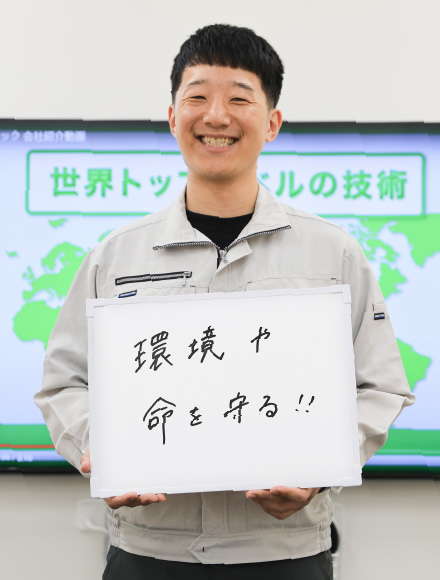 ック 会社紹介動画
世界トップ ベルの技術
環境や
命を守る!!